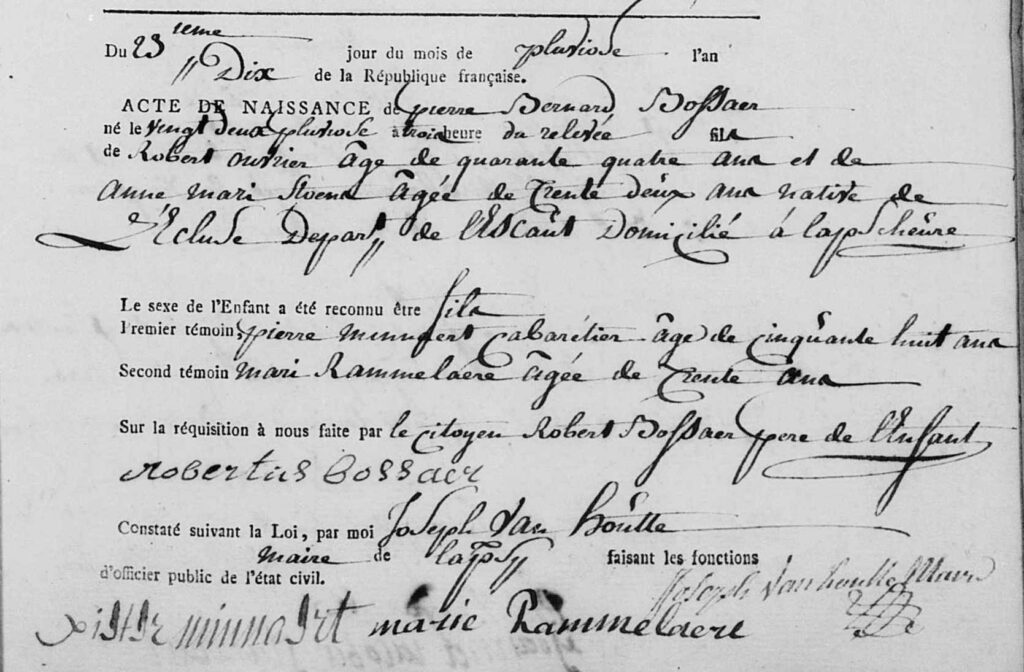 Du 23 ieme jour du mois de pluviose l'an
Dix de la République française.
ACTE DE NAISSANCE de pierre Bernard Bossaer
né le vingt deux pluviose à trois heure du relevée fils
de Robert ouvrier âge de quarante quatre ans et de
anne mari âgée de trente deux ans native de
L'Ecluse Depart de l'Escaut Domicilié à lapscheure
Le sexe de l'Enfant a été reconnu être fils
Premier témoin pierre minnaert Cabarétier âge de cinquante huit ans
Second témoin mari Rammelaere âgée de trente ans
Sur la réquisition à nous faite par le citoyen Robert Bossaer pere de l'enfant
Robertus bossaer
Constaté suivant la Loi, par moi Joseph Van houtte
maire de laps faisant les fonctions
d'officier public de l'état civil.
Joseph Vanhoutte Maire
pieter minnaert marie Rammelaere